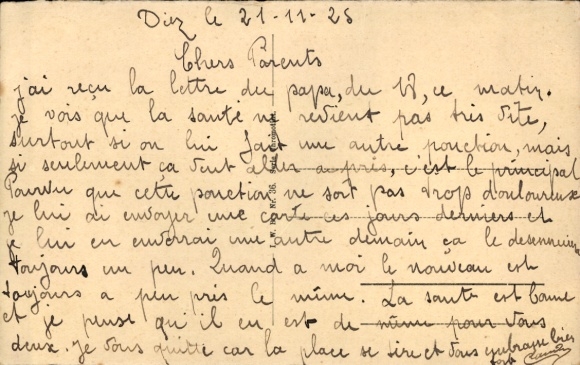 Diez le 21-11-25
Chers Parents
j'ai reçu la lettre du papa, du 18, ce matin.
je vois que la santé ne revient pas très vite,
surtout si on lui fait une autre ponction, mais
si seulement ça veut aller après, c'est le principal
Pourvu que cette ponction ne soit pas trop douloureuse
je lui ai envoyer une carte ces jours derniers et
je lui en enverrai une autre demain ça le desennuiera
toujours un peu. Quand a moi le nouveau est
toujours a peu près le même. La santé est bonne
et je pense qu'il en est de même pour vous
deux. je vous quitte car la place se tire et vous embrasse bien
fort
No. 36.